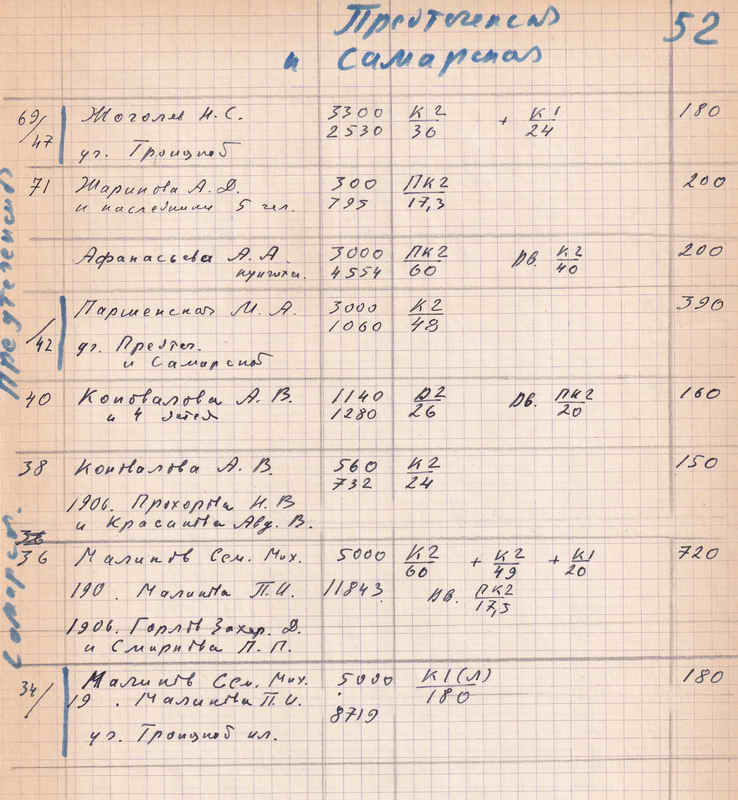 Предтеченская 52
и Самарская
69/47 Жоголев Н. С. 3300 К2/36 + К1/24 180
2530
уг. Троицкой
71 Жаринова А. Д. 300 ПК2/17,3 200
и наследники 5 чел. 795
Афанасьева А. А. 3000 ПК2/60 Дв. К2/40 200
4554
Паршенская М. А. 3000 К2/48 390
/42 1060
уг. Предтеч.
и Самарской
40 Коновалова А. В. 1140 Д2/26 Дв. ПК2/20 160
и 4 детей 1280
38 Коновалова А. В. 560 К2/24 150
732
1906. Прохорова Н. В
и Красикова Авд. В.
36 Малинов Сем. Мих. 5000 К2/60 + К2/49 + К1/20 720
190 . Малинова П. И. 11843 Дв. ПК2/17,5
1906. Горлов Захар. Д.
и Смирнова П. П.
34/ Малинов Сем. Мих. 5000 К1(Л)/180 180
19 . Малинова П. И.
8719
уг. Троицкой ул.
Предтеченская
Самарск.